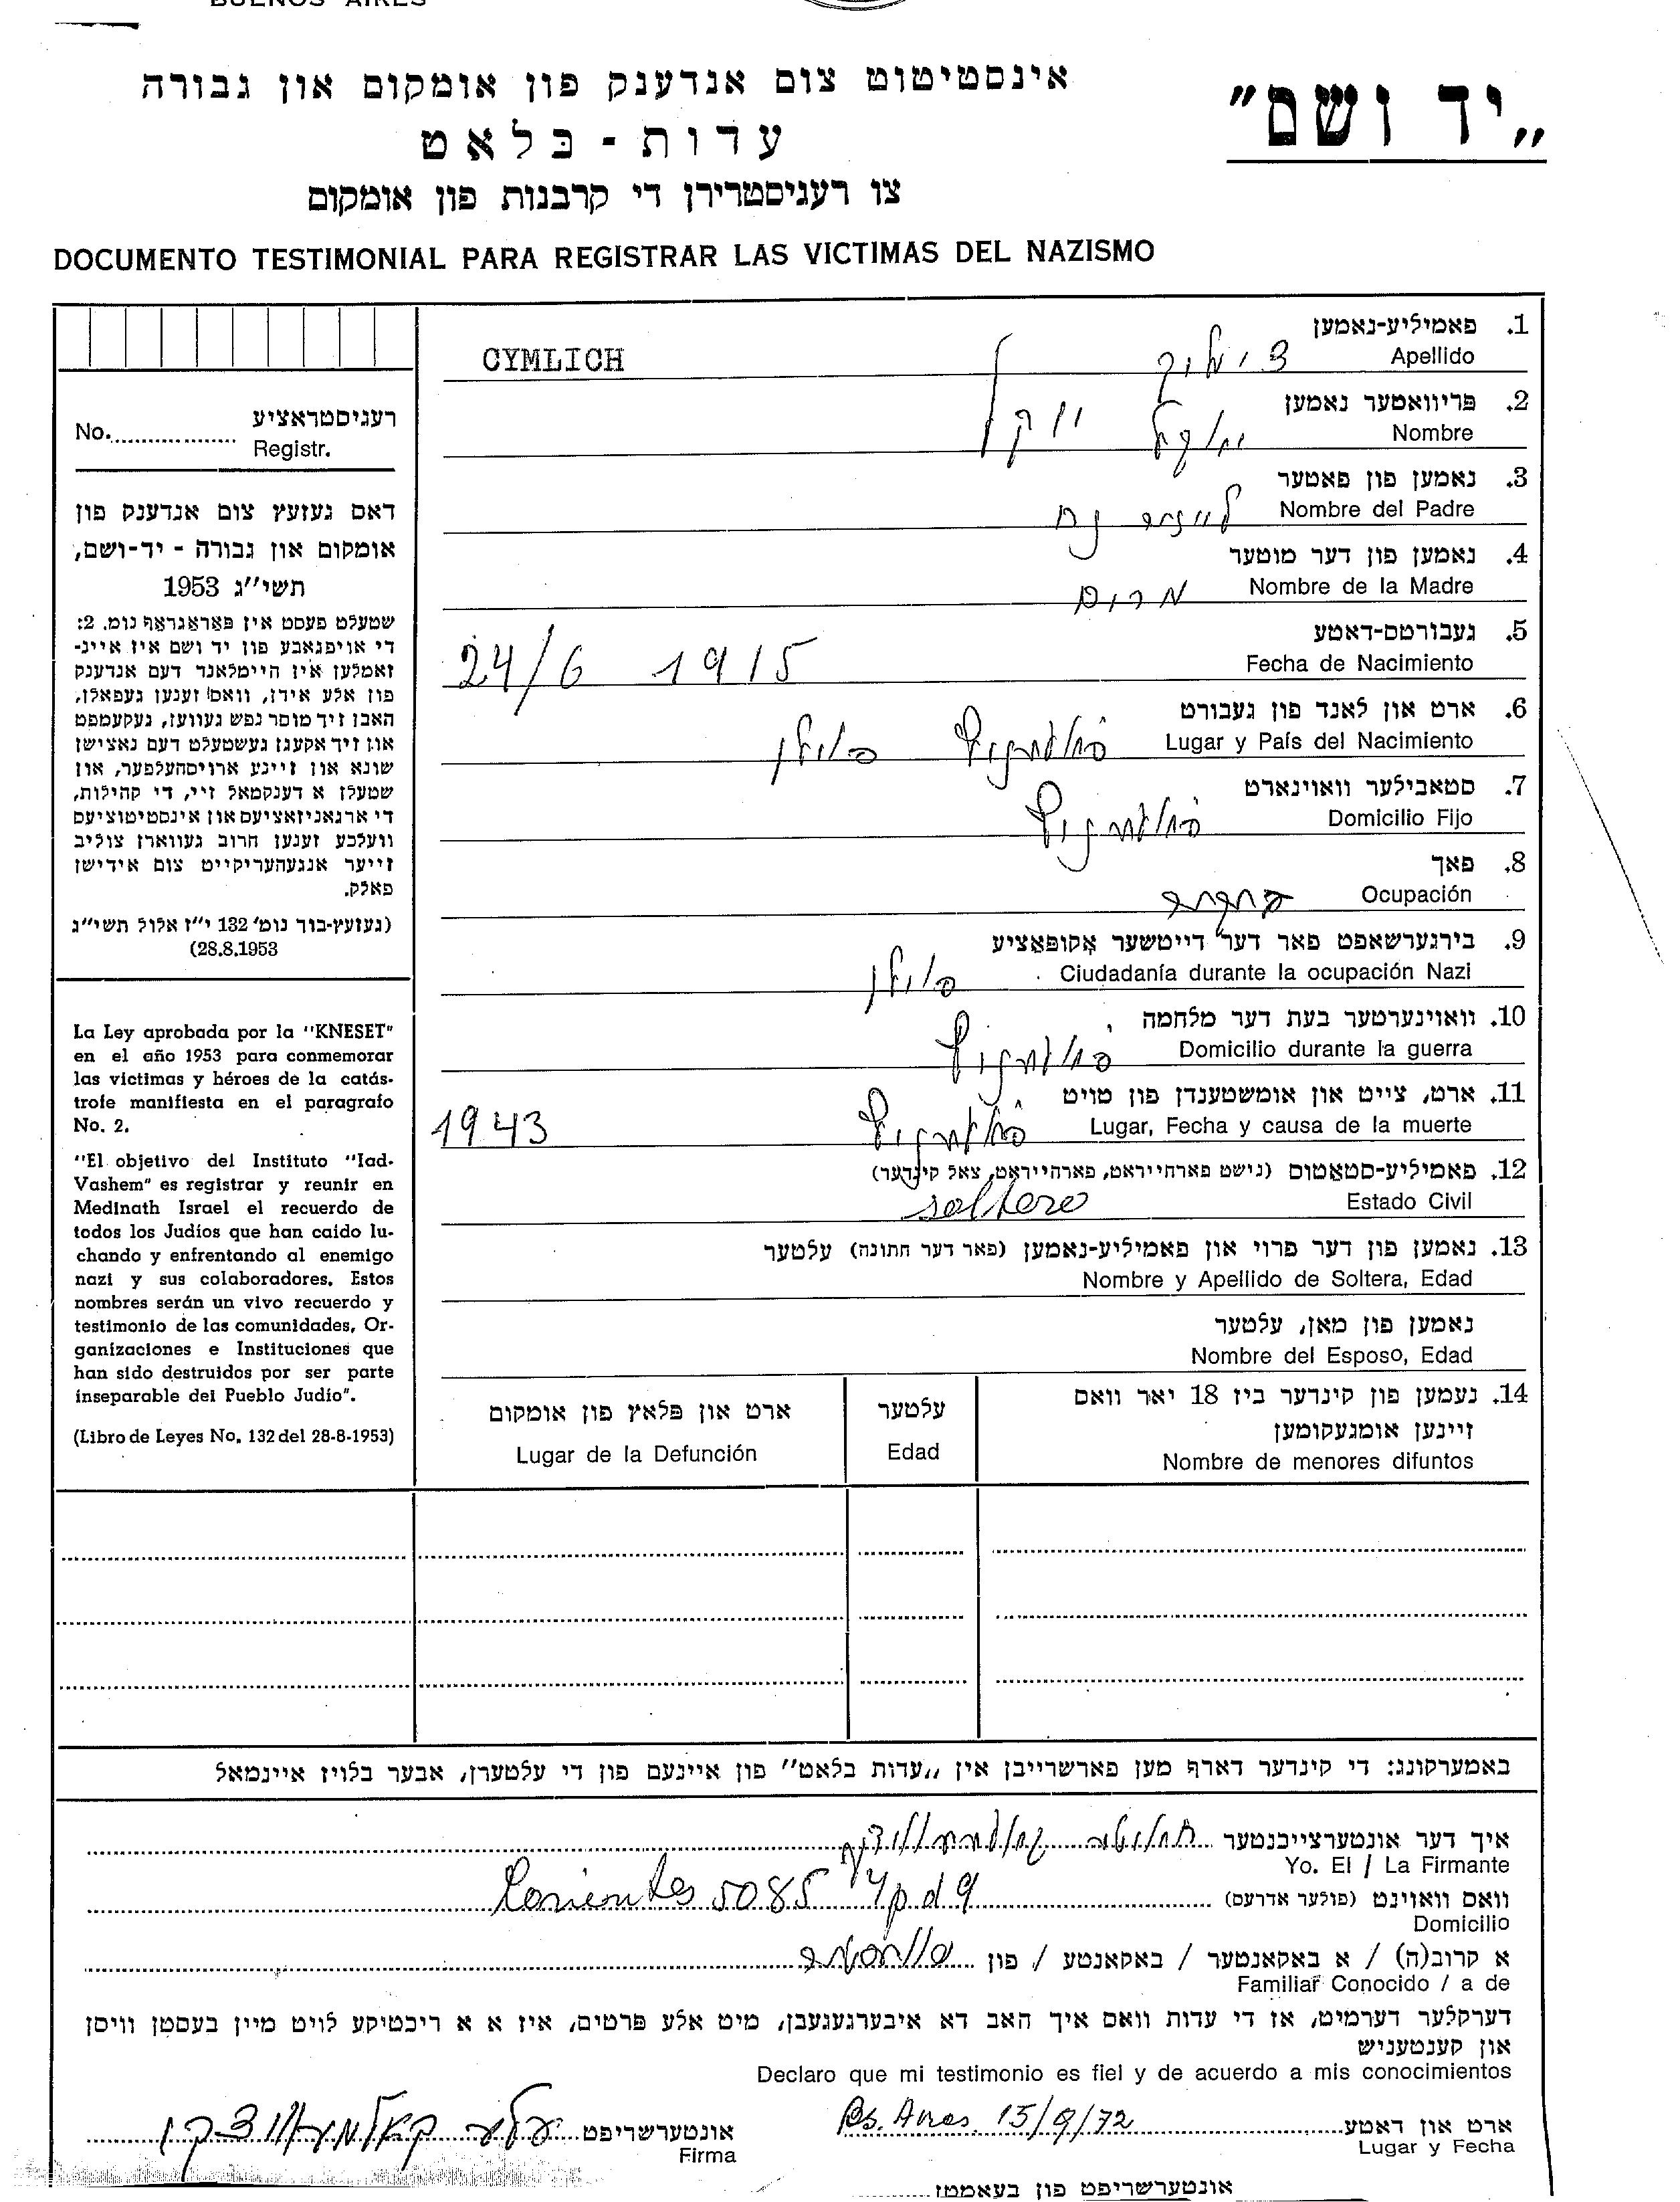 BUENOS AIRES
„יד ושם"
אינסטיטוט צום אנדענק פון אומקום און גבורה
עדות - בלאט
צו רעגיסטרירן די קרבנות פון אומקום
DOCUMENTO TESTIMONIAL PARA REGISTRAR LAS VICTIMAS DEL NAZISMO
1. פאמיליע-נאמען
Apellido
CYMLICH
2. פריוואטער נאמען
Nombre
3. נאמען פון פאטער
Nombre del Padre
4. נאמען פון דער מוטער
Nombre de la Madre
מרים
5. געבורטס-דאטע
Fecha de Nacimiento
24/6 1915
6. ארט און לאנד פון געבורט
Lugar y País del Nacimiento
פוילן
7. סטאבילער וואוינארט
Domicilio Fijo
8. פאך
Ocupación
9. בירגערשאפט פאר דער דייטשער אָקופּאַציע
Ciudadanía durante la ocupación Nazi
פוילן
10. וואוינערטער בעת דער מלחמה
Domicilio durante la guerra
11. ארט, צייט און אומשטענדן פון טויט
Lugar, Fecha y causa de la muerte
1943
12. פאמיליע-סטאַטוס (נישט פארהייראט, פארהייראט, צאל קינדער)
Estado Civil
soltero
13. נאמען פון דער פרוי און פאמיליע-נאמען (פאר דער חתונה) עלטער
Nombre y Apellido de Soltera, Edad
נאמען פון מאן, עלטער
Nombre del Esposo, Edad
14. נעמען פון קינדער ביז 18 יאר וואס
זיינען אומגעקומען
Nombre de menores difuntos
עלטער
Edad
ארט און פלאץ פון אומקום
Lugar de la Defunción
רעגיסטראציע
No. Registr.
דאס געזעץ צום אנדענק פון
אומקום און גבורה - יד-ושם,
תשי"ג 1953
שטעלט פעסט אין פאראגראף נומ. 2:
די אויפגאבע פון יד ושם איז איינ-
זאמלען אין היימלאנד דעם אנדענק
פון אלע אידן, וואס זענען געפאלן,
האבן זיך מוסר נפש געווען, געקעמפט
און זיך אקעגן געשטעלט דעם נאצישן
שונא און זיינע ארויסהעלפער, און
שטעלן א דענקמאל זיי, די קהילות,
די ארגאניזאציעס און אינסטיטוציעס
וועלכע זענען חרוב געווארן צוליב
זייער אנגעהעריקייט צום אידישן
פאלק.
(געזעץ-בוך נומ' 132 י"ז אלול תשי"ג
28.8.1953)
La Ley aprobada por la "KNESET"
en el año 1953 para conmemorar
las víctimas y héroes de la catás-
trofe manifiesta en el paragrafo
No. 2.
"El objetivo del Instituto "Iad-
Vashem" es registrar y reunir en
Medinath Israel el recuerdo de
todos los Judíos que han caído lu-
chando y enfrentando al enemigo
nazi y sus colaboradores. Estos
nombres serán un vivo recuerdo y
testimonio de las comunidades, Or-
ganizaciones e Instituciones que
han sido destruidos por ser parte
inseparable del Pueblo Judío".
(Libro de Leyes No. 132 del 28-8-1953)
באמערקונג: די קינדער דארף מען פארשרייבן אין „עדות בלאט" פון איינעם פון די עלטערן, אבער בלויז איינמאל
איך דער אונטערצייכנטער
Yo. El / La Firmante
וואס וואוינט (פולער אדרעס) 5085
Domicilio
א קרוב(ה) / א באקאנטער / באקאנטע / פון
Familiar Conocido / a de
דערקלער דערמיט, אז די עדות וואס איך האב דא איבערגעגעבן, מיט אלע פרטים, איז א א ריכטיקע לויט מיין בעסטן וויסן
און קענטעניש
Declaro que mi testimonio es fiel y de acuerdo a mis conocimientos
ארט און דאטע Bs. Aires 15/9/72
Lugar y Fecha
אונטערשריפט
Firma
אונטערשריפט פון בעאמטן